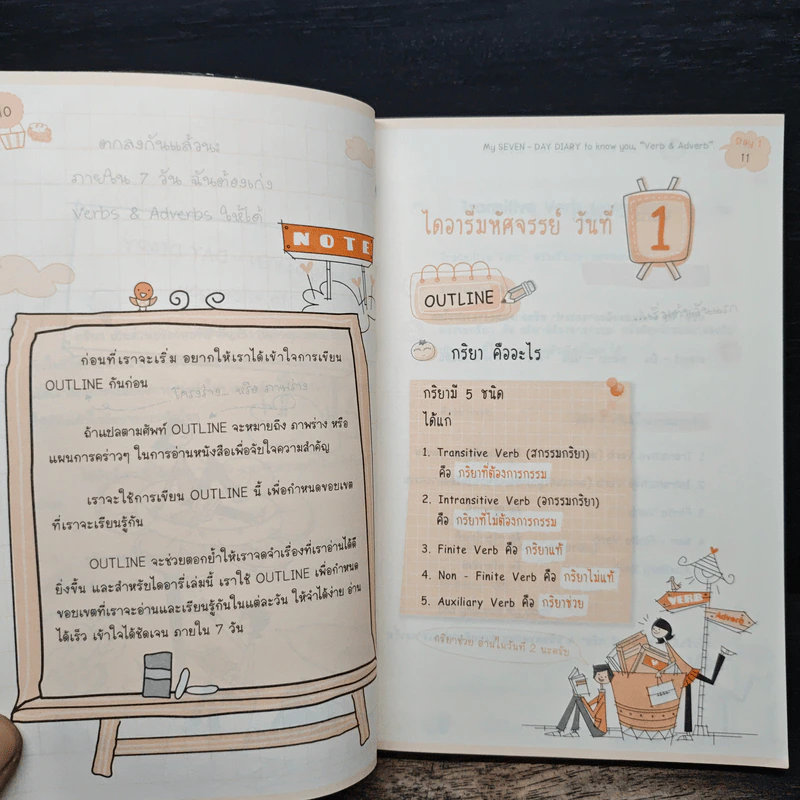 10
ตกลงกันแล้วนะ
ภายใน 7 วัน ฉันต้องเก่ง
Verbs & Adverbs ให้ได้
NOTE
ก่อนที่เราจะเริ่ม อยากให้เราได้เข้าใจการเขียน
OUTLINE กันก่อน
ถ้าแปลตามศัพท์ OUTLINE จะหมายถึง ภาพร่าง หรือ
แผนการคร่าวๆ ในการอ่านหนังสือเพื่อจับใจความสำคัญ
เราจะใช้การเขียน OUTLINE นี้ เพื่อกำหนดขอบเขต
ที่เราจะเรียนรู้กัน
OUTLINE จะช่วยตอกย้ำให้เราจดจำเรื่องที่เราอ่านได้ดี
ยิ่งขึ้น และสำหรับไดอารี่เล่มนี้ เราใช้ OUTLINE เพื่อกำหนด
ขอบเขตที่เราจะอ่านและเรียนรู้กันในแต่ละวัน ให้จำได้ง่าย อ่าน
ได้เร็ว เข้าใจได้ชัดเจน ภายใน 7 วัน
My SEVEN - DAY DIARY to know you, "Verb & Adverb".
Day 1
11
ไดอารี่มหัศจรรย์ วันที่ 1
OUTLINE
กริยา คืออะไร
กริยามี 5 ชนิด
ได้แก่
1. Transitive Verb (สกรรมกริยา)
คือ กริยาที่ต้องการกรรม
2. Intransitive Verb (อกรรมกริยา)
คือ กริยาที่ไม่ต้องการกรรม
3. Finite Verb คือ กริยาแท้
4. Non - Finite Verb คือ กริยาไม่แท้
5. Auxiliary Verb คือ กริยาช่วย
กริยาช่วย อ่านในวันที่ 2 นะครับ
VERB
Adverb